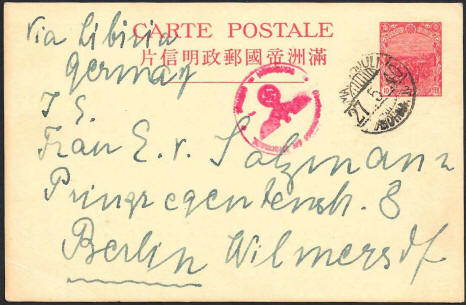 CARTE POSTALE
滿洲帝國郵政明信片
Via Sibiria
Germany
I. E.
Frau E. v. Salzmann
Prinzregentenstr. 8
Berlin Wilmersdf.